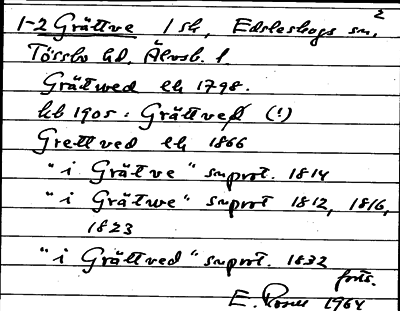 2
1-2 Grättve 1 sk, Edsleskogs sn,
Tössbo hd, Älvsb. l.
Grätwed ek 1798.
kb 1905: Grättved (!)
Grettved ek 1866
"i Grätve" snprot. 1814
"i Grätwe" snprot 1812, 1816,
1823
"i Grättved" snprot. 1832
forts.
E. 1964